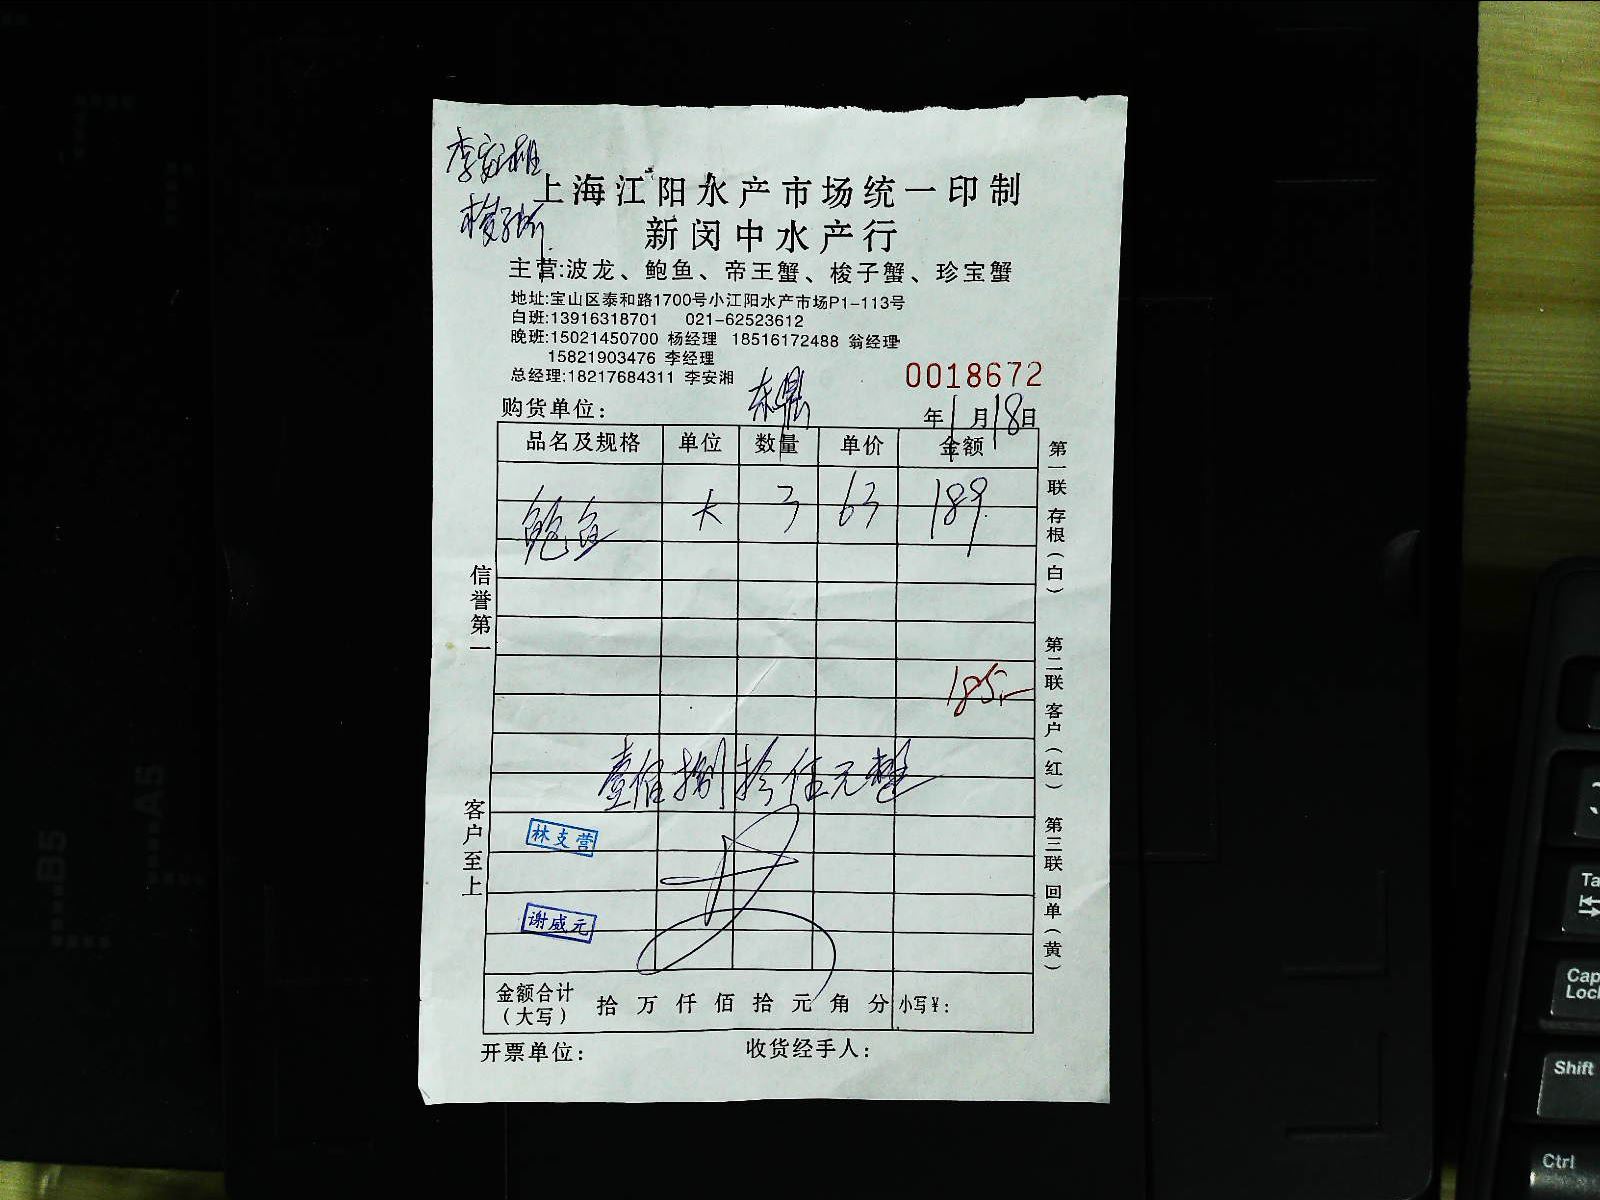 李安湘
上海江阳水产市场统一印制
新闵中水产行
主营:波龙、鲍鱼、帝王蟹、梭子蟹、珍宝蟹
地址:宝山区泰和路1700号小江阳水产市场P1-113号
白班:13916318701 021-62523612
晚班:15021450700 杨经理 18516172488 翁经理
15821903476 李经理
总经理:18217684311 李安湘
0018672
购货单位:
年1月18日
品名及规格 单位 数量 单价 金额
鲍鱼 大 3 63 189
185.-
壹佰捌拾伍元整
林支营
谢威元
金额合计(大写) 拾 万 仟 佰 拾 元 角 分 小写¥:
开票单位: 收货经手人:
信誉第一
客户至上
第一联 存根(白)
第二联 客户(红)
第三联 回单(黄)
B5
A5
Ta
Cap
Loc
Shift
Ctrl